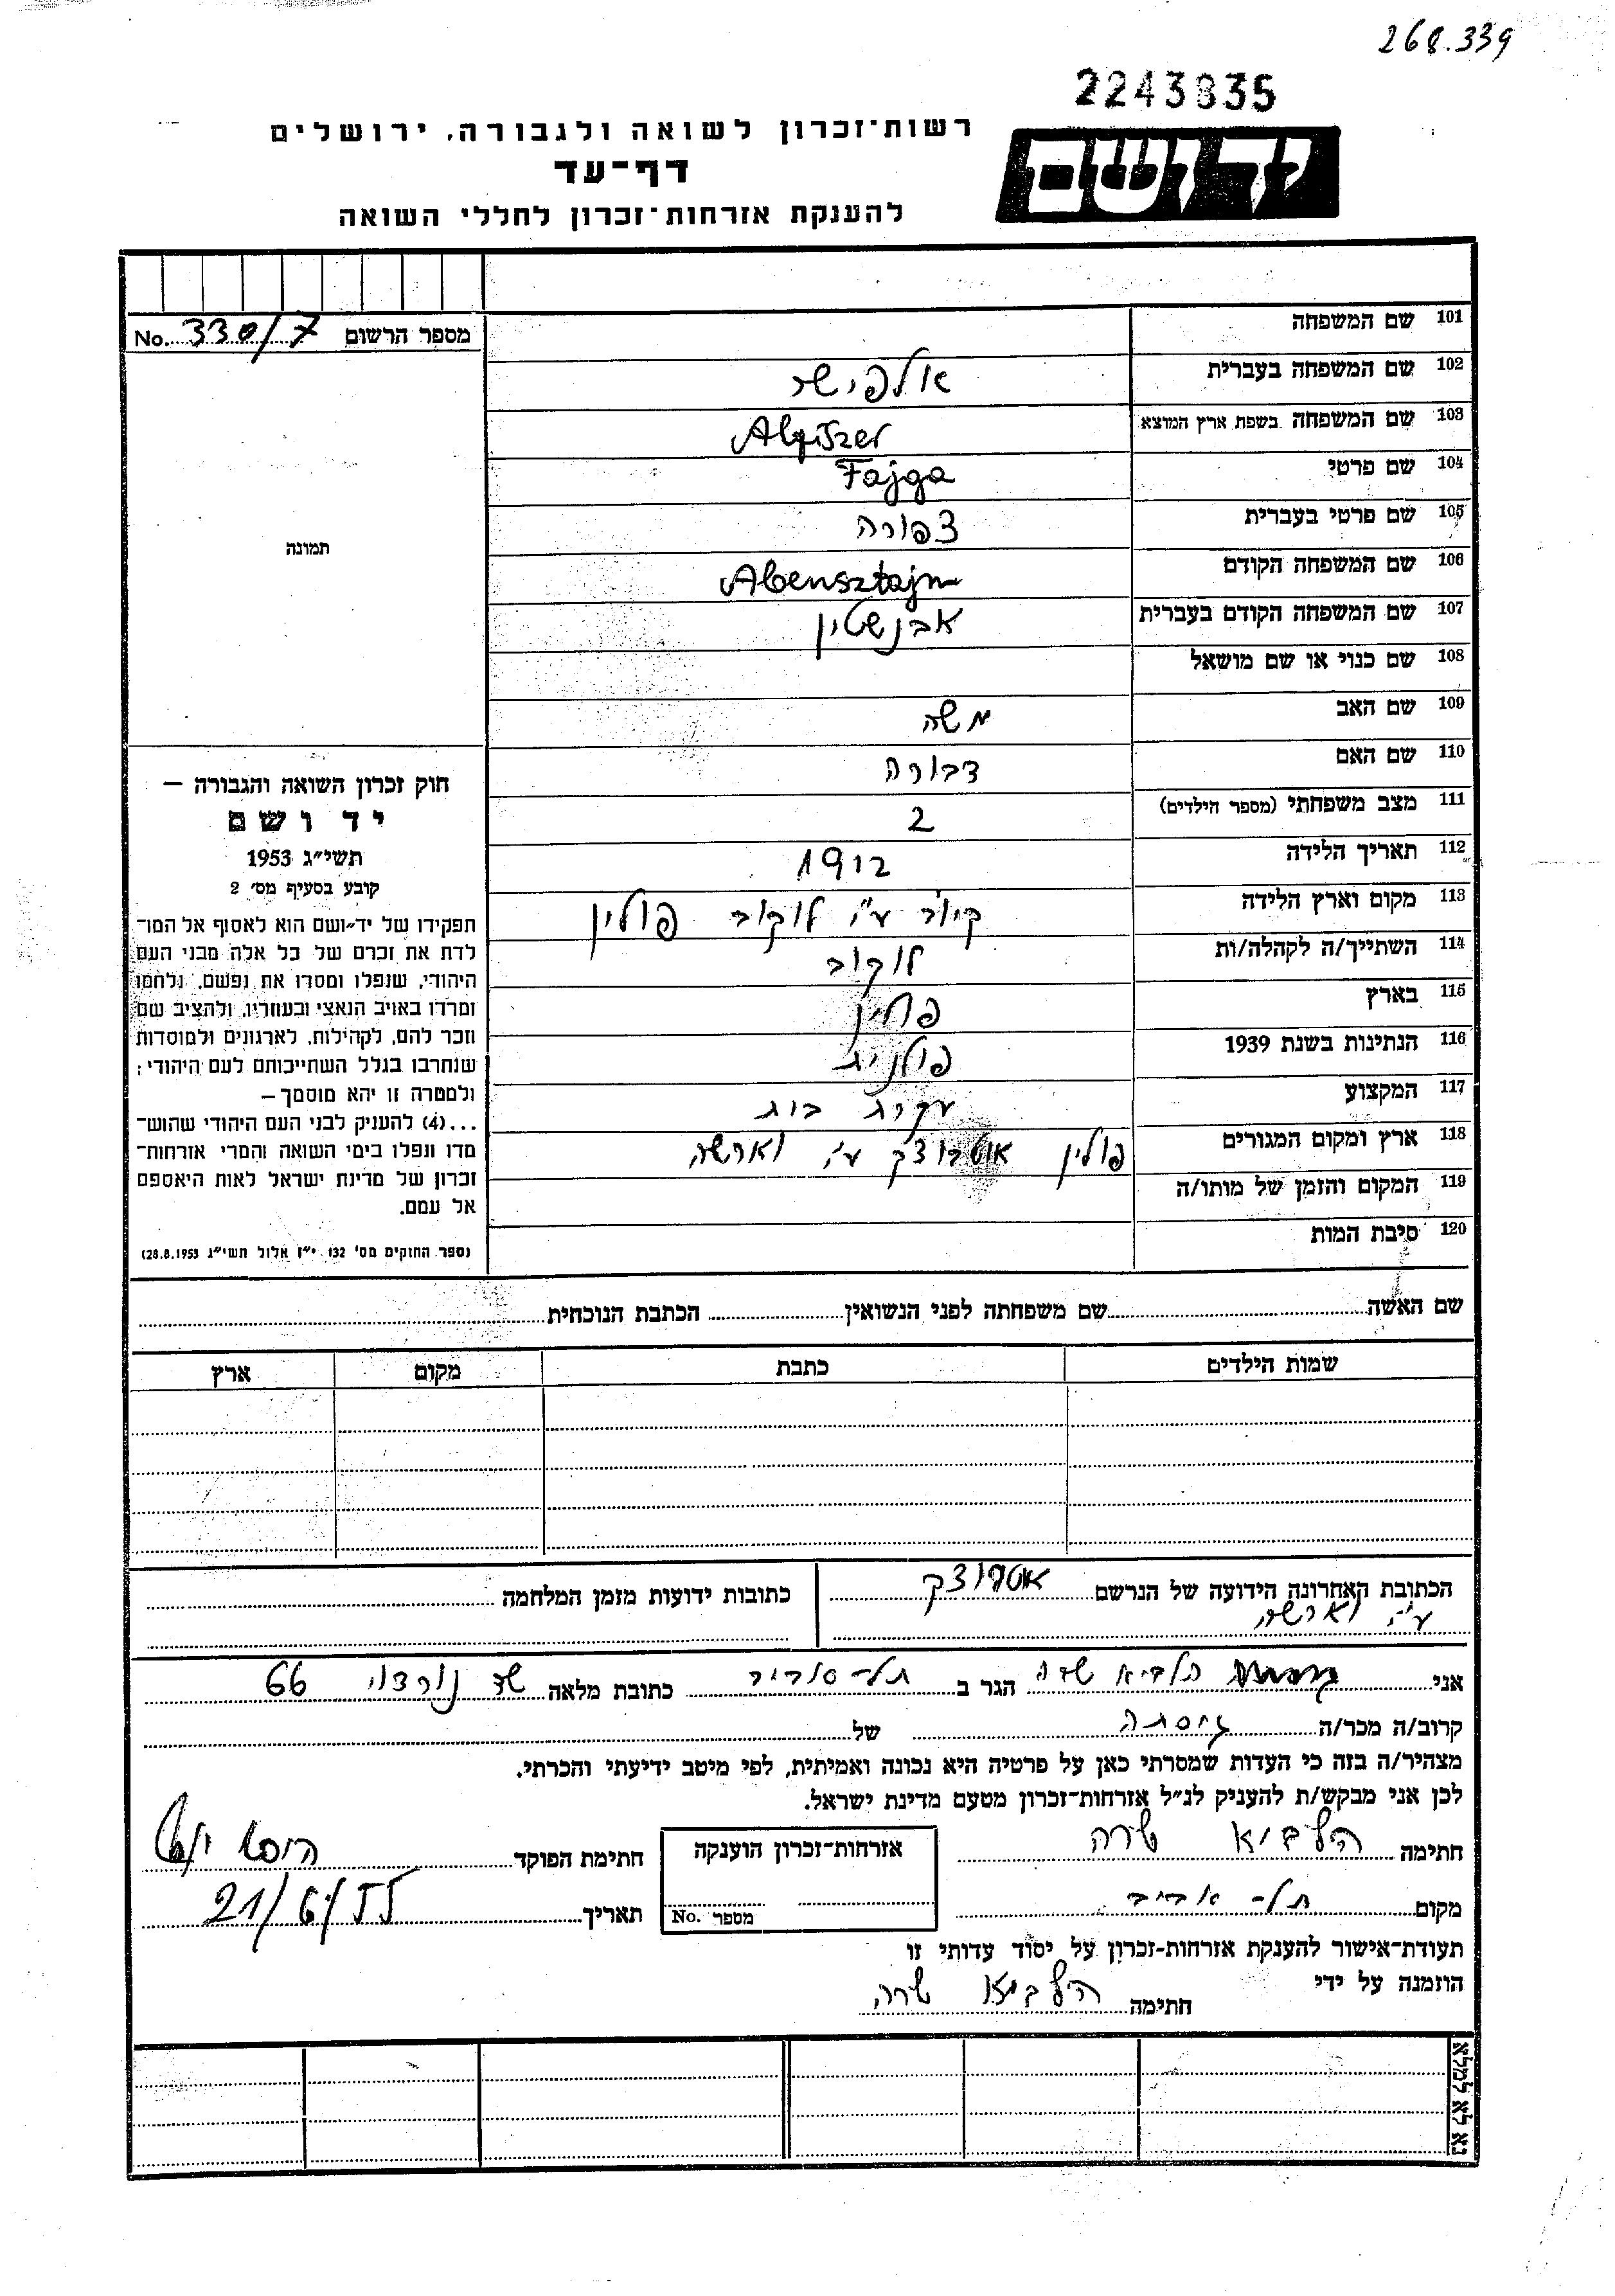 268.339
2243835
יד ושם
רשות־זכרון לשואה ולגבורה, ירושלים
דף־עד
להענקת אזרחות־זכרון לחללי השואה
מספר הרשום No. 330/7
תמונה
101 שם המשפחה
102 שם המשפחה בעברית אלפישר
103 שם המשפחה בשפת ארץ המוצא Alfiszer
104 שם פרטי Fajga
105 שם פרטי בעברית צפורה
106 שם המשפחה הקודם Abensztajn
107 שם המשפחה הקודם בעברית אבנשטין
108 שם כנוי או שם מושאל
109 שם האב משה
110 שם האם דבורה
111 מצב משפחתי (מספר הילדים) 2
112 תאריך הלידה 1912
113 מקום וארץ הלידה ע״י לוקוב פולין
114 השתייך/ה לקהלה/ות לוקוב
115 בארץ פולין
116 הנתינות בשנת 1939 פולנית
117 המקצוע עקרת בית
118 ארץ ומקום המגורים פולין אוטבוצק ע״י וארשה
119 המקום והזמן של מותו/ה
120 סיבת המות
חוק זכרון השואה והגבורה –
יד ושם
תשי״ג 1953
קובע בסעיף מס׳ 2
תפקידו של יד־ושם הוא לאסוף אל המו־
לדת את זכרם של כל אלה מבני העם
היהודי, שנפלו ומסרו את נפשם, נלחמו
ומרדו באויב הנאצי ובעוזריו, ולהציב שם
וזכר להם, לקהילות, לארגונים ולמוסדות
שנחרבו בגלל השתייכותם לעם היהודי;
ולמטרה זו יהא מוסמך –
...(4) להעניק לבני העם היהודי שהוש־
מדו ונפלו בימי השואה והמרי אזרחות־
זכרון של מדינת ישראל לאות היאספם
אל עמם.
(ספר החוקים מס׳ 132 י״ז אלול תשי״ג 28.8.1953)
שם האשה שם משפחתה לפני הנשואין הכתבת הנוכחית
שמות הילדים כתבת מקום ארץ
הכתובת האחרונה הידועה של הנרשם אטבוצק
ע״י וארשה
כתובות ידועות מזמן המלחמה
אני הלביא שרה הגר ב תל-אביב כתובת מלאה שד נורדוי 66
קרוב/ה מכר/ה גיסתה של
מצהיר/ה בזה כי העדות שמסרתי כאן על פרטיה היא נכונה ואמיתית, לפי מיטב ידיעתי והכרתי.
לכן אני מבקש/ת להעניק לנ״ל אזרחות־זכרון מטעם מדינת ישראל.
חתימה הלביא שרה
אזרחות־זכרון הוענקה
מספר No.
חתימת הפוקד
מקום תל-אביב
תאריך 21/6/55
תעודת־אישור להענקת אזרחות־זכרון על יסוד עדותי זו
הוזמנה על ידי
חתימה הלביא שרה
נא לא למלא